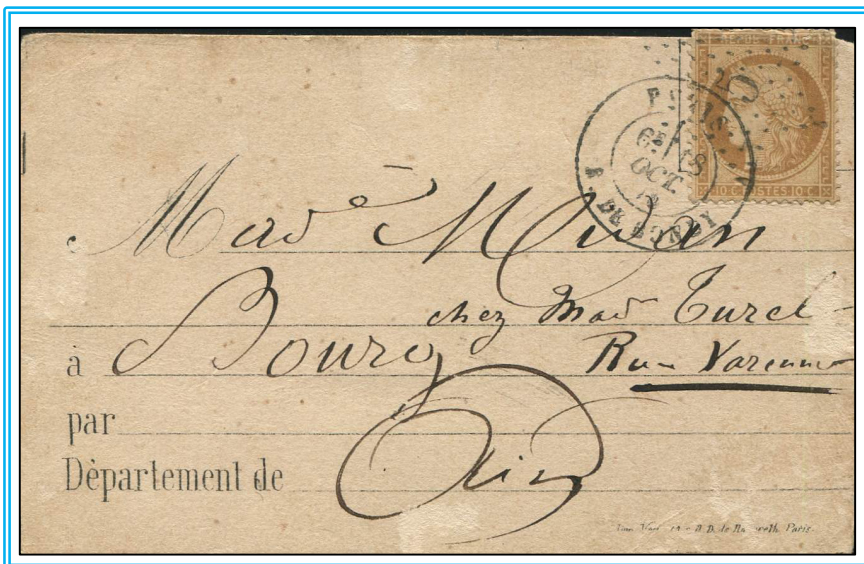 REPUB. FRANC.
10 C. POSTES. 10 C.
PARIS
6E 18
OCT.
R. DE BONDY
Made
chez Mad Turel
à Bourg Rue Varenne
par
Département de Ain
Paris.